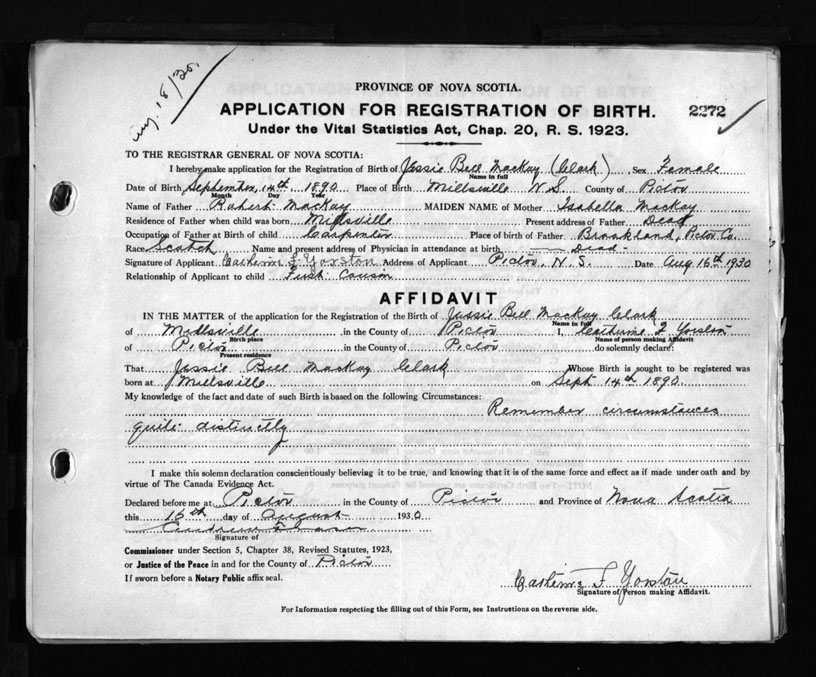 Aug. 18/30.
PROVINCE OF NOVA SCOTIA.
APPLICATION FOR REGISTRATION OF BIRTH. 2272
Under the Vital Statistics Act, Chap. 20, R. S. 1923.
TO THE REGISTRAR GENERAL OF NOVA SCOTIA:
I hereby make application for the Registration of Birth of Jessie Bell MacKay (Clark) Sex Female
Name in full
Date of Birth September, 14th 1890 Place of Birth Millsville N.S. County of Pictou
Month Day Year
Name of Father Robert MacKay MAIDEN NAME of Mother Isabella MacKay
Residence of Father when child was born Millsville Present address of Father Dead
Occupation of Father at Birth of child Carpenter Place of birth of Father Brookland, Pictou Co.
Race Scotch Name and present address of Physician in attendance at birth Dead
Signature of Applicant Catherine F Yorston Address of Applicant Pictou, N.S. Date Aug 16th 1930
Relationship of Applicant to child First Cousin
AFFIDAVIT
IN THE MATTER of the application for the Registration of the Birth of Jessie Bell MacKay Clark
Name in full
of Millsville in the County of Pictou I, Catherine F Yorston
Birth place Name of person making Affidavit
of Pictou in the County of Pictou do solemnly declare:
Present residence
That Jessie Bell MacKay Clark Whose Birth is sought to be registered was
born at Millsville on Sept 14th 1890.
My knowledge of the fact and date of such Birth is based on the following Circumstances:
Remember circumstances
quite distinctly
I make this solemn declaration conscientiously believing it to be true, and knowing that it is of the same force and effect as if made under oath and by
virtue of The Canada Evidence Act.
Declared before me at Pictou in the County of Pictou and Province of Nova Scotia
this 16th day of August 1930
Signature of
Commissioner under Section 5, Chapter 38, Revised Statutes, 1923,
or Justice of the Peace in and for the County of Pictou
If sworn before a Notary Public affix seal.
Catherine F Yorston
Signature of Person making Affidavit.
For Information respecting the filling out of this Form, see Instructions on the reverse side.